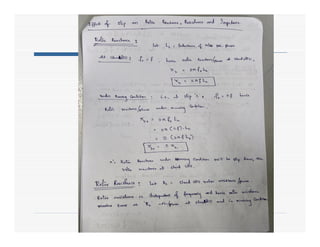 Effect of slip on Rotor Reactance, Resistance and Impedance
Rotor Reactance :
Let L₂ : Inductance of rotor per phase
At standstill : f₂ = f , hence rotor reactance/phase at standstill,
X₂ = 2π f₂ L₂
X₂ = 2π f L₂
Under Running Condition : i.e. at slip 's', f₂ = sf hence
Rotor reactance/phase under running condition,
X₂ᵣ = 2π f₂ L₂
= 2π (sf) L₂
= s (2π f L₂)
X₂ᵣ = s X₂
Rotor Reactance under Running Condition will be slip times, the
rotor reactance at stand still.
Rotor Resistance : Let R₂ = stand still rotor resistance/phase
Rotor resistance is independent of frequency and hence rotor resistance
remains same as R₂ /phase at standstill and in running condition